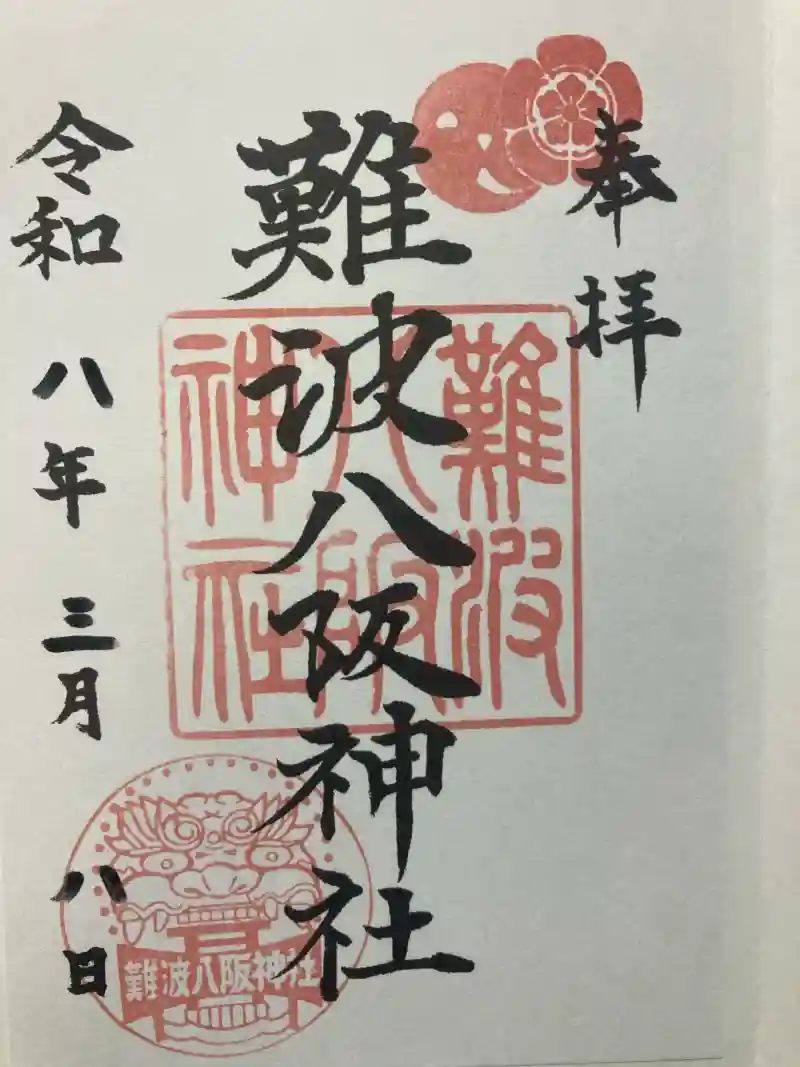 奉拝
難波八阪神社
難波
八阪
神社
令和八年三月八日
難波八阪神社